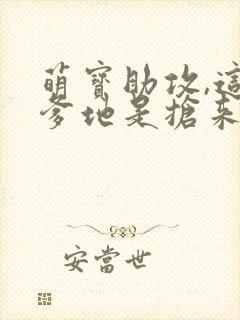 萌寶助攻,這
爹地是搶來
安當世